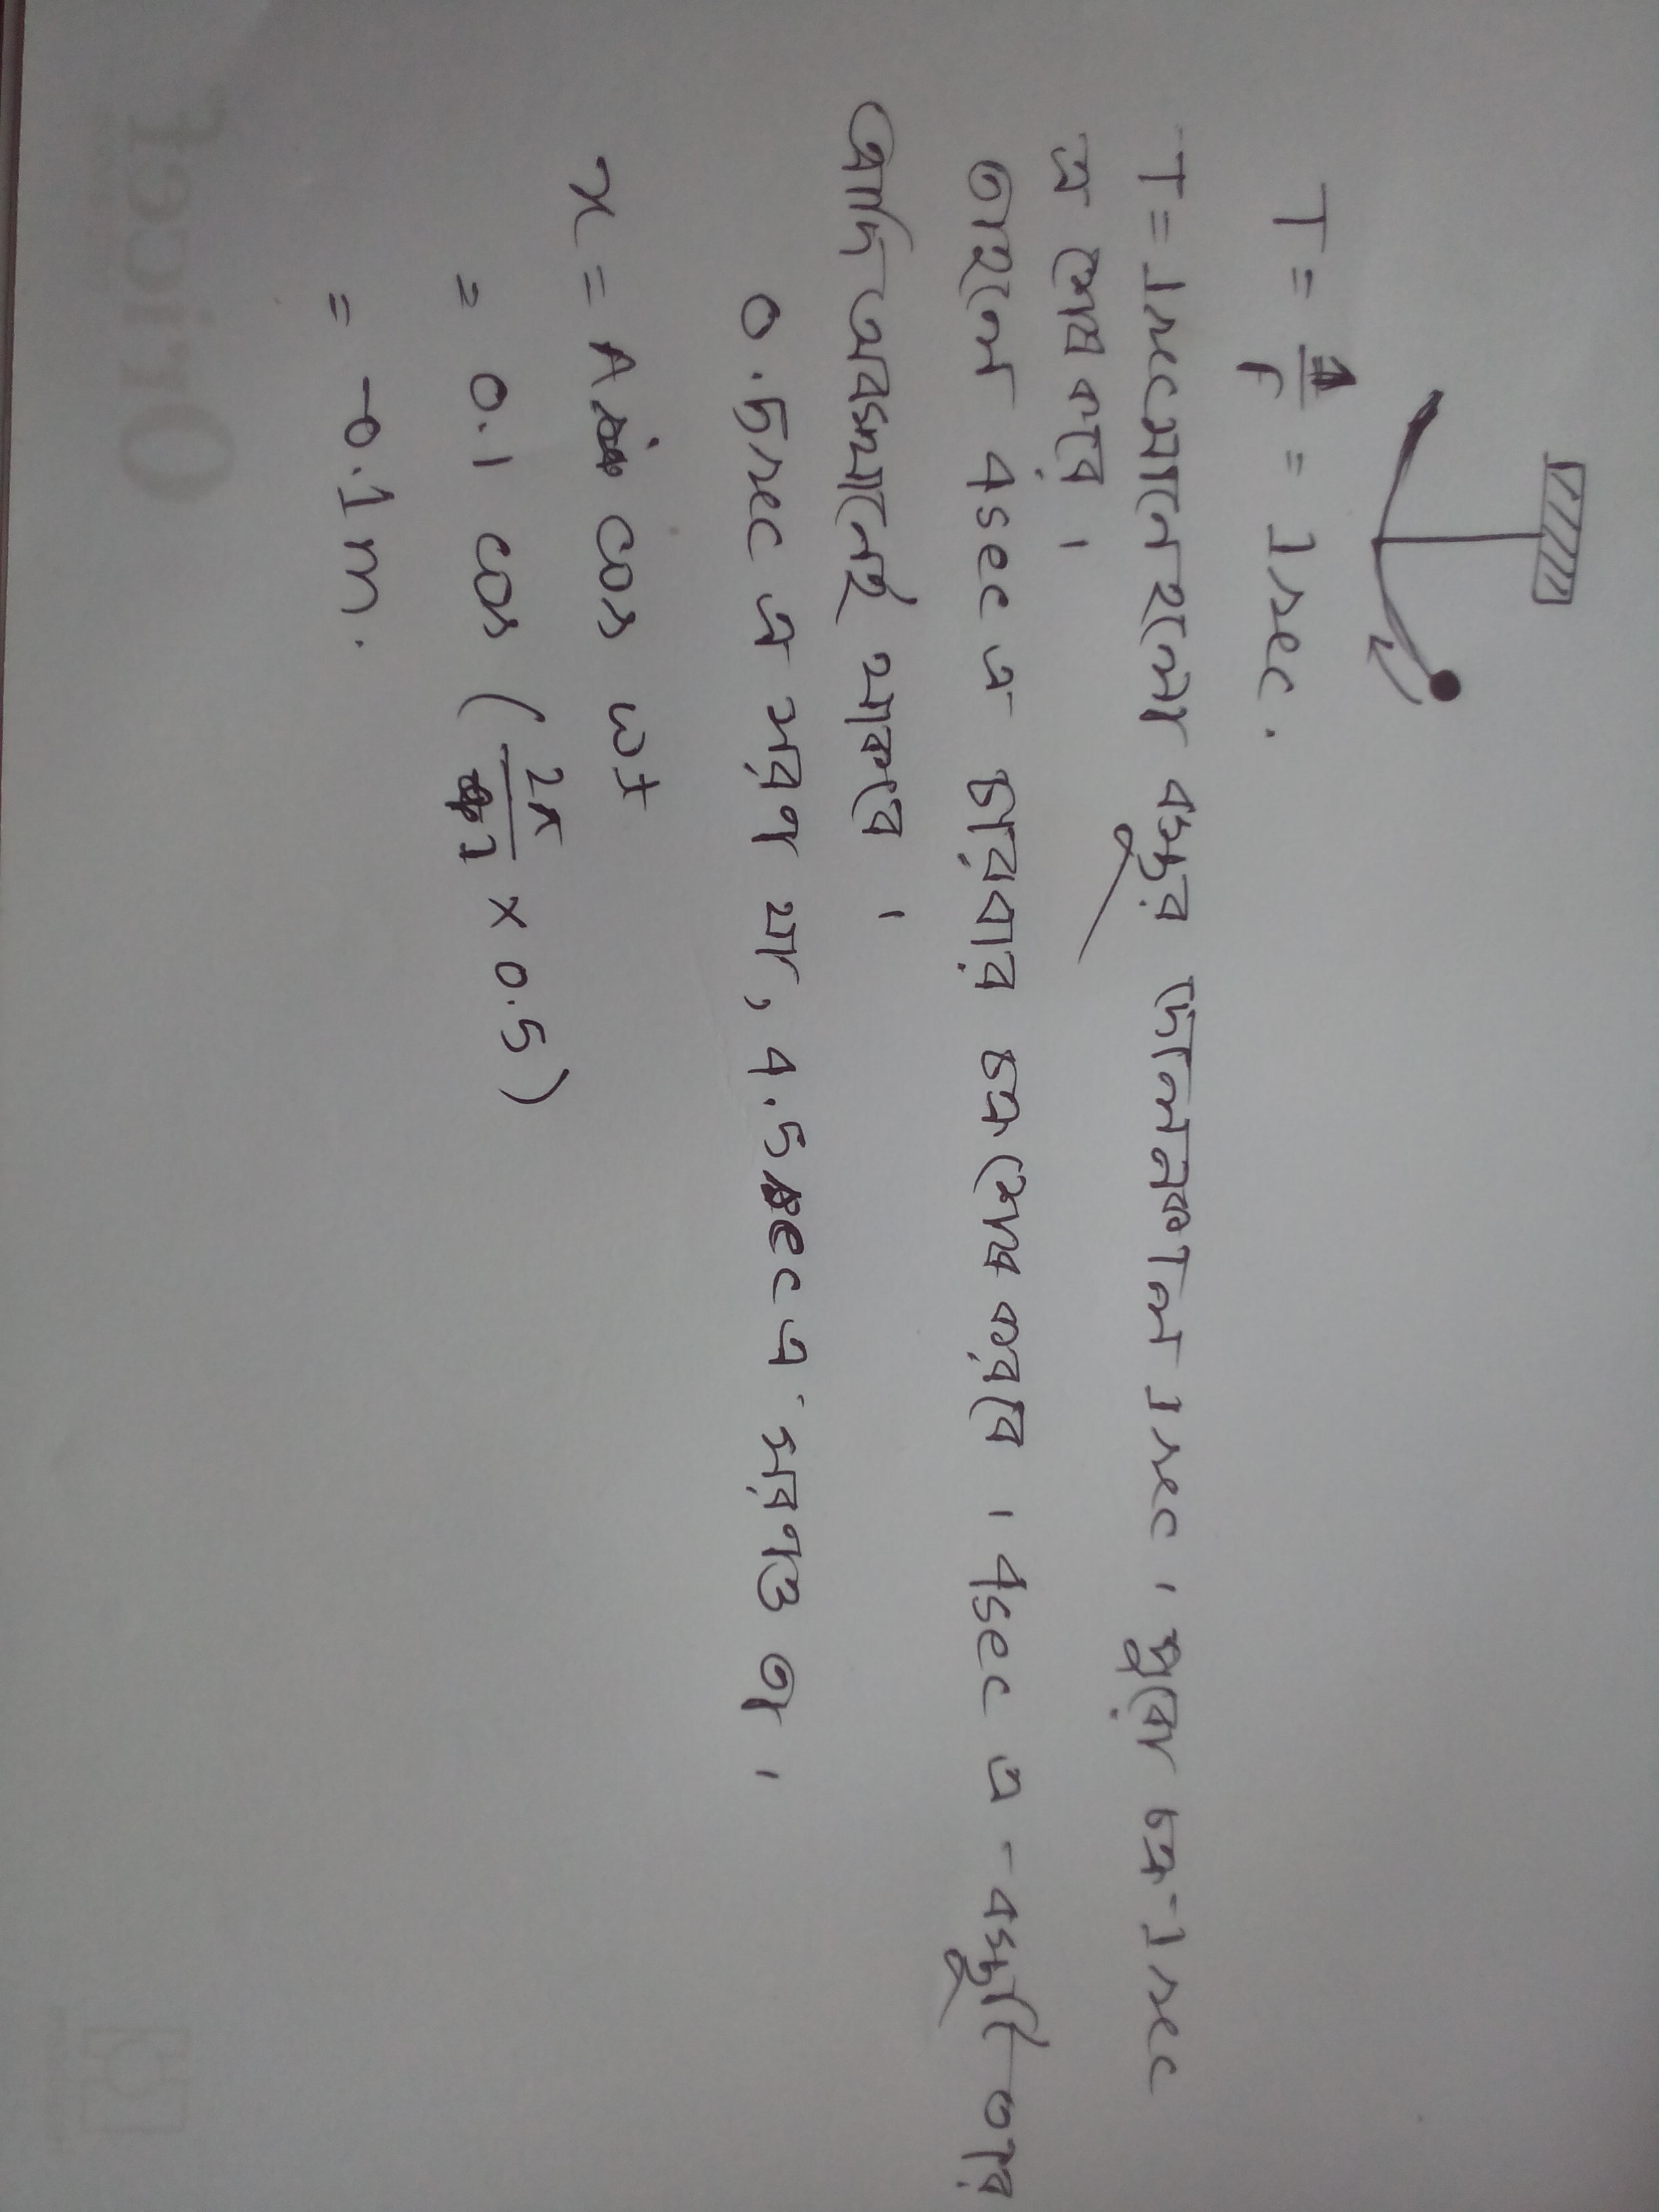 T = 1/f = 1 sec.
T = 1sec মানে হলো বস্তুর দোলনকাল 1 sec, পুরো চক্র 1 sec
এ শেষ করে।
তাহলে 4sec এ চারবার চক্র শেষ করবে। 4sec এ বস্তুটি তার
আদি অবস্থানেই থাকবে।
0.5sec এ সরণ যা, 4.5sec এ সরণও তা,
x = A cos ωt
= 0.1 cos (2π/1 × 0.5)
= -0.1 m.
Officet